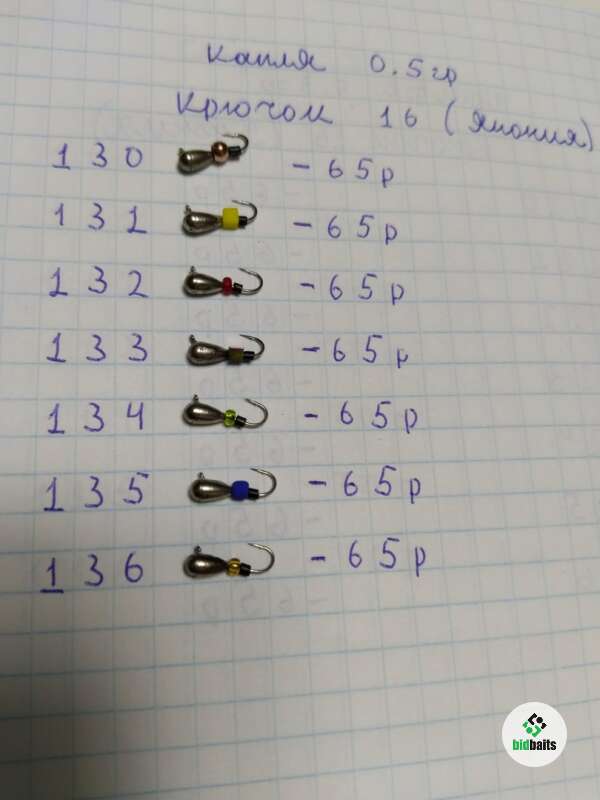 капля 0.5гр
Крючок 16 (Япония)
130 - 65р
131 - 65р
132 - 65р
133 - 65р
134 - 65р
135 - 65р
136 - 65р
bidbaits